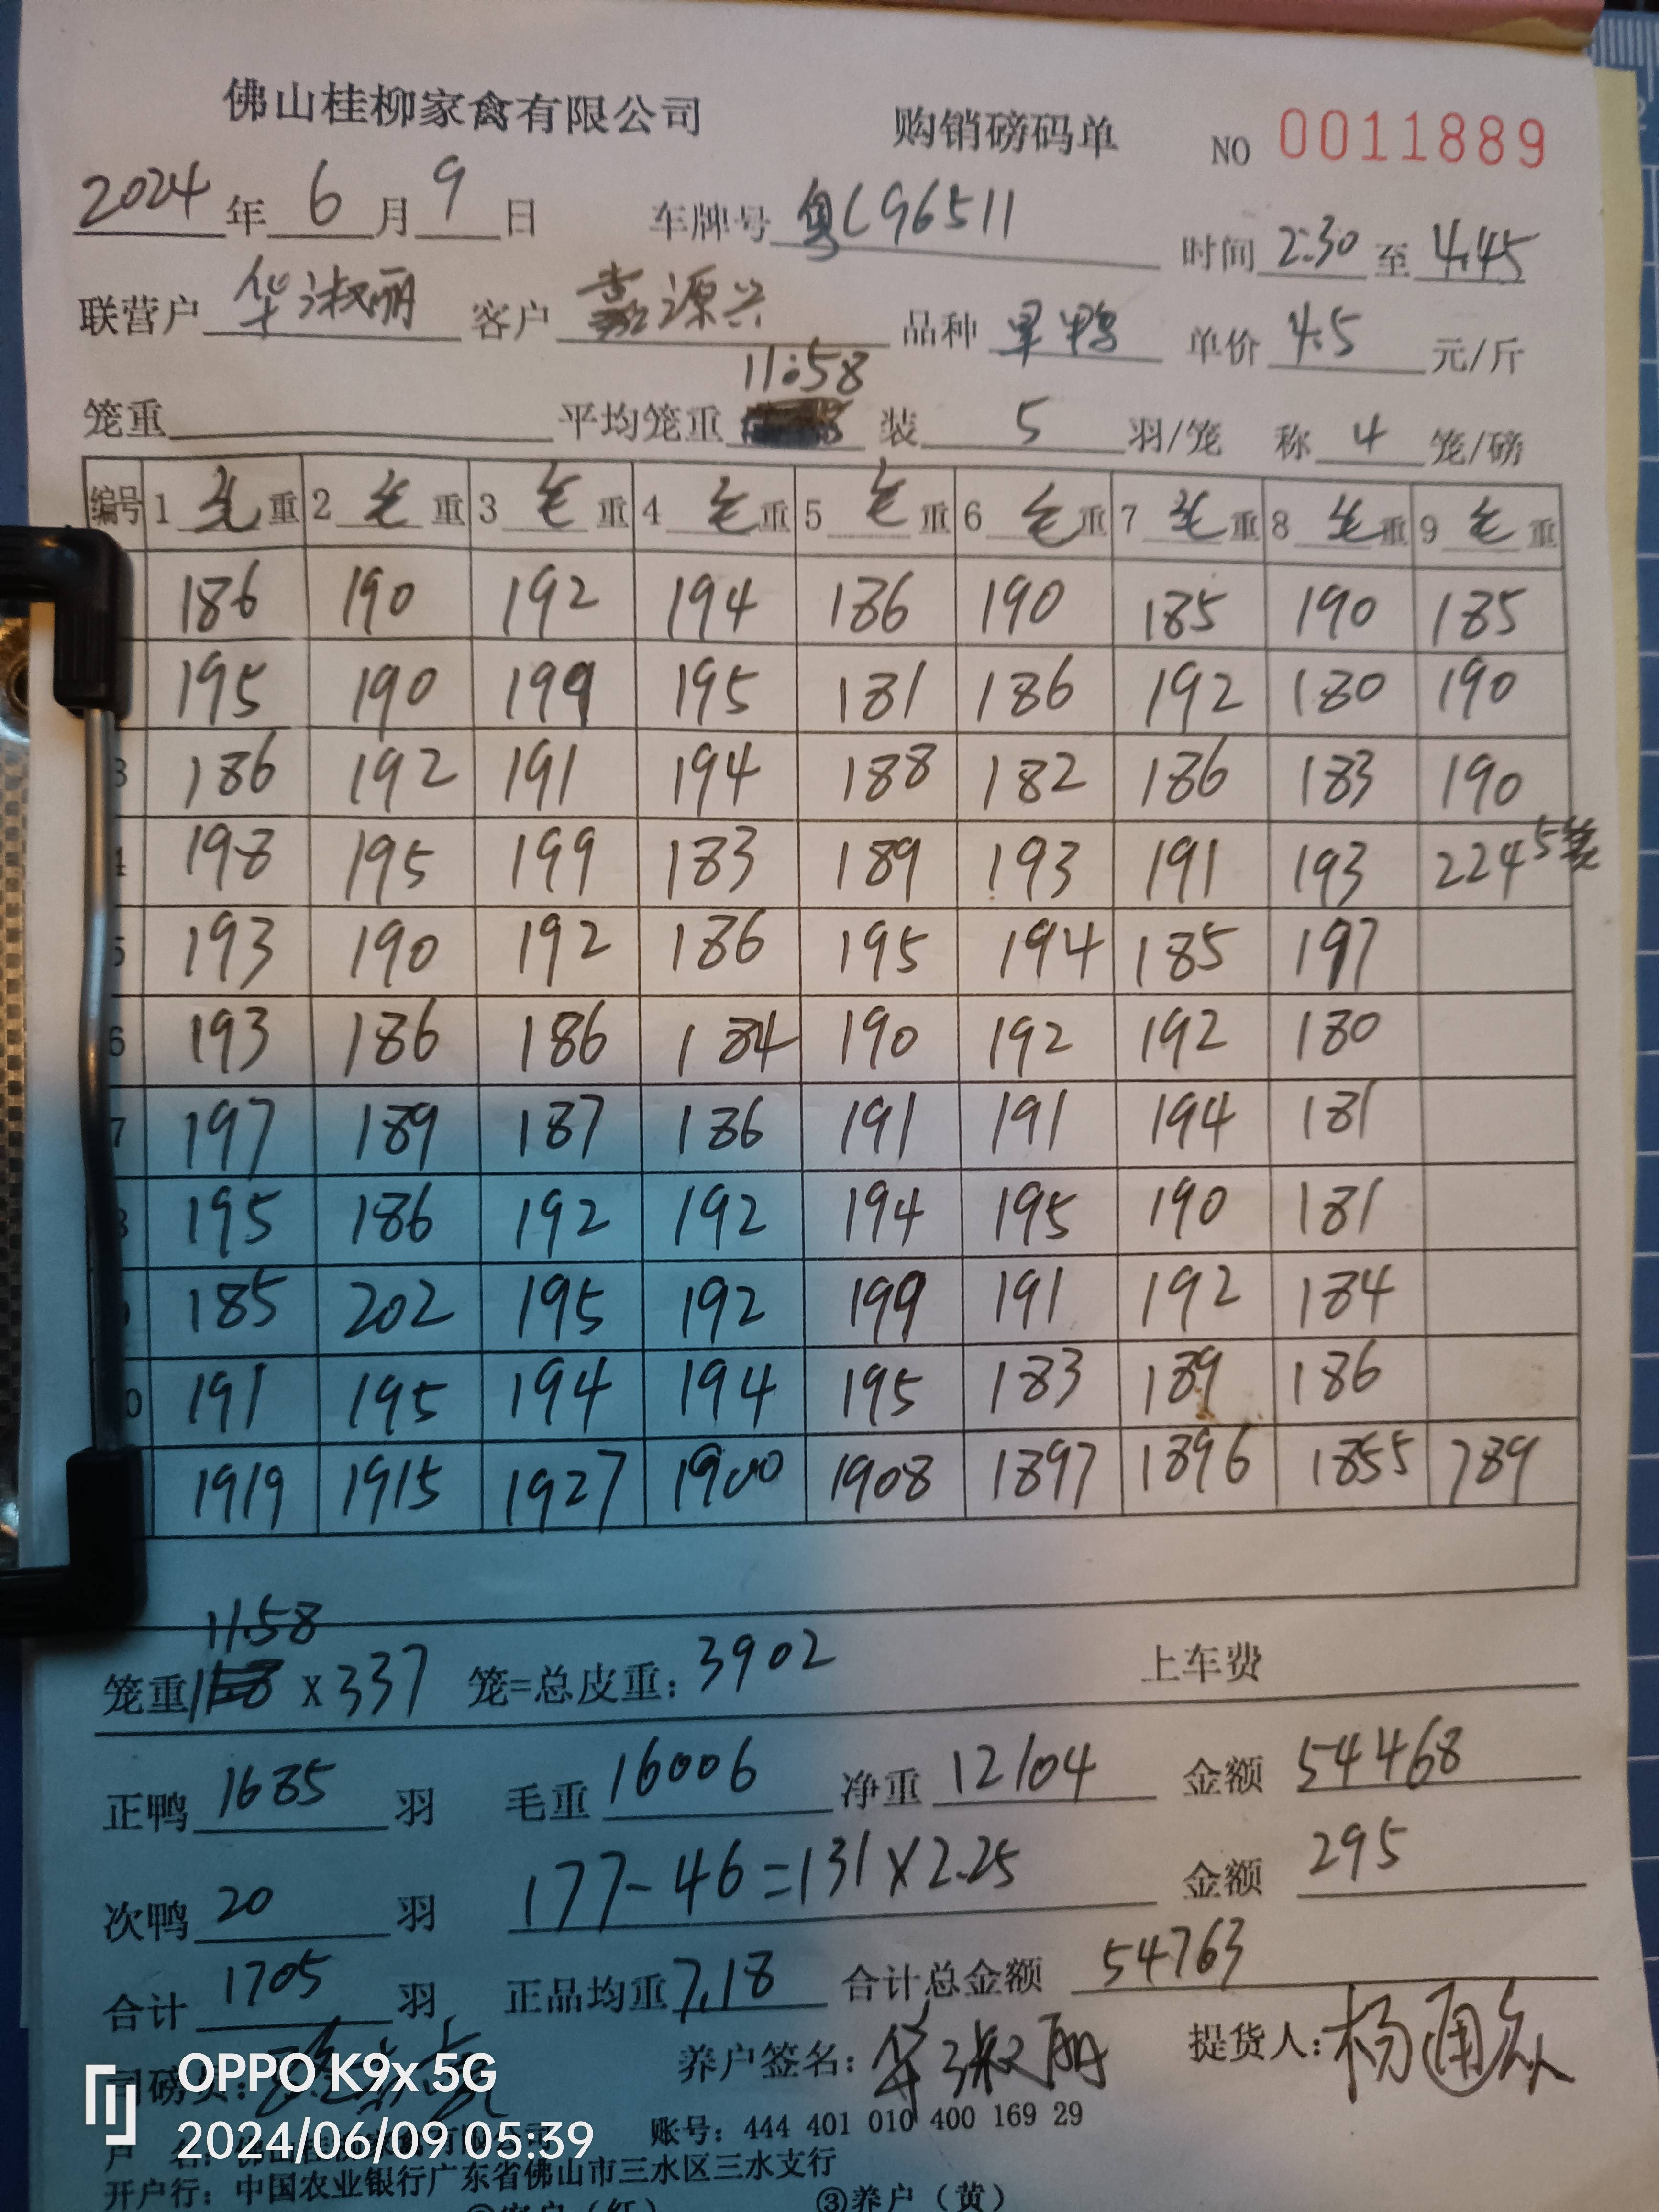 佛山桂柳家禽有限公司 购销磅码单 NO 0011889
2024年6月9日 车牌号 粤C96511 时间 2:30 至 4.45
联营户 华淑丽 客户 嘉源兴 品种 旱鸭 单价 4.5 元/斤
11:58
笼重 平均笼重 装 5 羽/笼 称 4 笼/磅
编号 1 毛重 2 毛重 3 毛重 4 毛重 5 毛重 6 毛重 7 毛重 8 毛重 9 毛重
186 190 192 194 186 190 185 190 185
195 190 199 195 181 186 192 180 190
3 186 192 191 194 188 182 186 183 190
4 198 195 199 183 189 193 191 193 224 5笼
5 193 190 192 186 195 194 185 197
6 193 186 186 184 190 192 192 180
7 197 189 187 186 191 191 194 181
8 195 186 192 192 194 195 190 181
9 185 202 195 192 199 191 192 184
0 191 195 194 194 195 183 189 186
1919 1915 1927 1900 1908 1897 1896 1855 789
11.58
笼重 x 337 笼=总皮重: 3902 上车费
正鸭 1685 羽 毛重 16006 净重 12104 金额 54468
次鸭 20 羽 177-46=131×2.25 金额 295
合计 1705 羽 正品均重 7.18 合计总金额 54763
司磅员: 养户签名: 华淑丽 提货人: 杨
OPPO K9x 5G
2024/06/09 05:39
户 名: 佛山桂柳家禽有限公司 账号: 444 401 010 400 169 29
开户行: 中国农业银行广东省佛山市三水区三水支行
②客户（红） ③养户（黄）